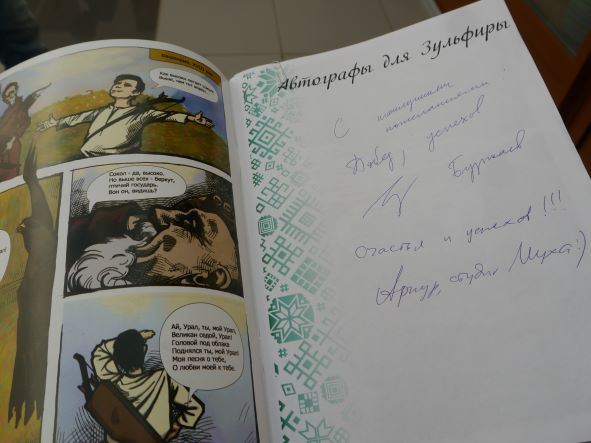 Как высоко летает сокол!
Сокол - да, высоко.
Но выше всех - Беркут,
птичий государь.
Вон он, видишь?
Ай, Урал, ты, мой Урал,
Великан седой, Урал!
Головой под облака
Поднялся ты, мой Урал!
Моя песня о тебе,
О любви моей к тебе.
Автографы для Зульфиры
С наилучшими
пожеланиями!
Побед, успехов
Счастья и успехов!!!
Артур, студия Мухет:)